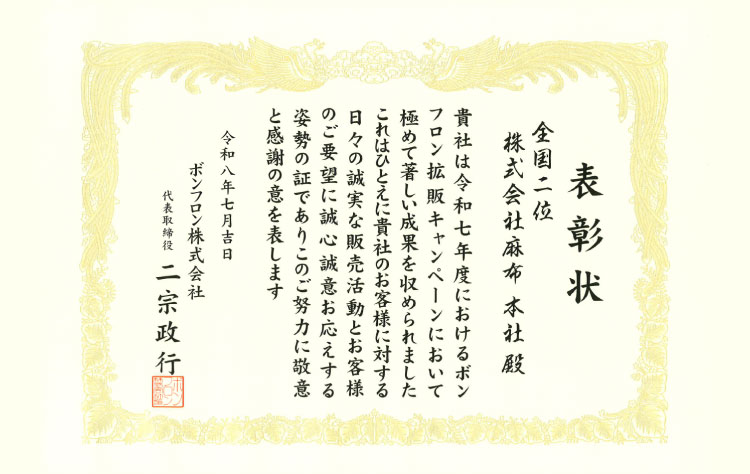 表彰状
全国二位
株式会社麻布 本社 殿
貴社は令和七年度におけるボン
フロン拡販キャンペーンにおいて
極めて著しい成果を収められました
これはひとえに貴社のお客様に対する
日々の誠実な販売活動とお客様
のご要望に誠心誠意お応えする
姿勢の証でありこのご努力に敬意
と感謝の意を表します
令和八年七月吉日
ボンフロン株式会社
代表取締役 二宗政行